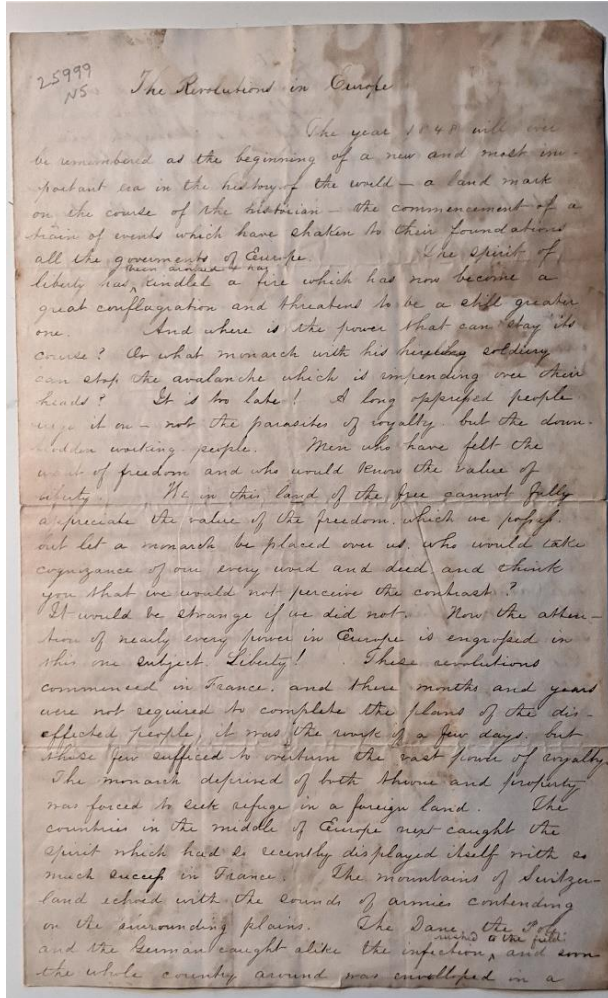 25999
NS
The Revolutions in Europe
The year 1848 will ever
be remembered as the beginning of a new and most im-
portant era in the history of the world — a land mark
on the course of the historian — the commencement of a
train of events which have shaken to their foundations
all the governments of Europe. The spirit of
been
liberty has kindled a fire which has now become a
great conflagration and threatens to be a still greater
one. And where is the power that can stay its
course? Or what monarch with his hireling soldiery
can stop the avalanche which is impending over their
heads? It is too late! A long oppressed people
urge it on — not the parasites of royalty but the down-
trodden working people. Men who have felt the
want of freedom and who would know the value of
liberty. We in this land of the free cannot fully
appreciate the value of the freedom which we possess.
but let a monarch be placed over us, who would take
cognizance of our every word and deed, and think
you that we would not perceive the contrast?
It would be strange if we did not. Now the atten-
tion of nearly every power in Europe is engrossed in
this one subject. Liberty! These revolutions
commenced in France, and there months and years
were not required to complete the plans of the dis-
effected people, it was the work of a few days, but
these few sufficed to overturn the vast power of royalty.
The monarch deprived of both throne and property
was forced to seek refuge in a foreign land. The
countries in the middle of Europe next caught the
spirit which had so recently displayed itself with so
much success in France. The mountains of Switzer-
land echoed with the sounds of armies contending
on the surrounding plains. The Dane, the Pole
rushed to the field
and the German caught alike the infection, and soon
the whole country around was envelloped in a